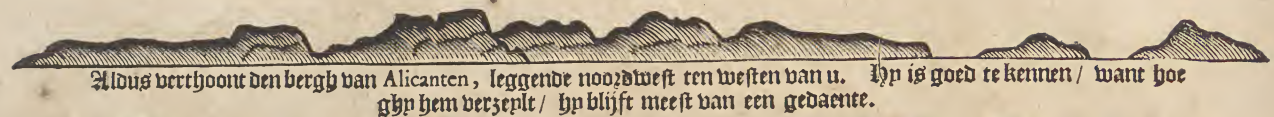 Aldus verthoont den bergh van Alicanten, leggende noordwest ten westen van u. Hy is goed te kennen / want hoe
ghy hem verzeylt / hy blijft meest van een gedaente.